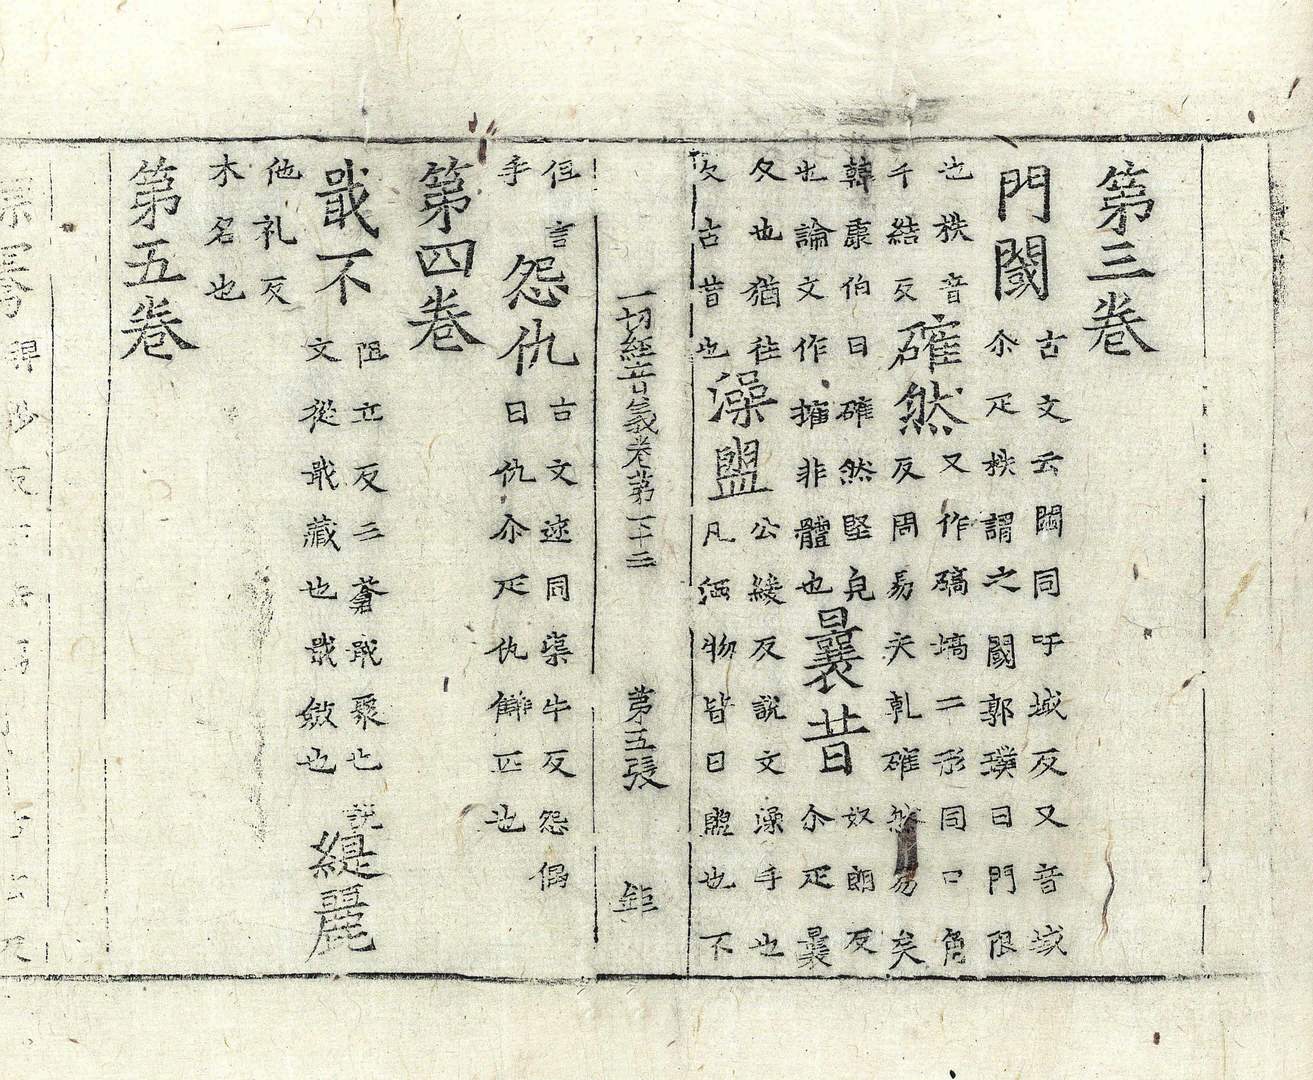 第三卷
門閾 古文云同吁域反又音域
尒疋柣謂之閾郭璞曰門限
也柣音 確然 又作碻塙二形同口角
千結反 反周易夫乹確然易矣
韓康伯曰確然堅皃 曩昔 奴朗反
也論文作擁非體也 尒疋曩
久也猶往 澡盥 公緩反說文澡手也
久古昔也 凡洒物皆曰盥也不
一切經音義卷第二十二 第五張 鉅
但言 怨仇 古文逑同渠牛反怨偶
手 曰仇尒疋仇讎匹也
第四卷
戢不 阻立反三蒼戢聚也說 緹麗
文從戢藏也戢斂也
他礼反
木名也
第五卷